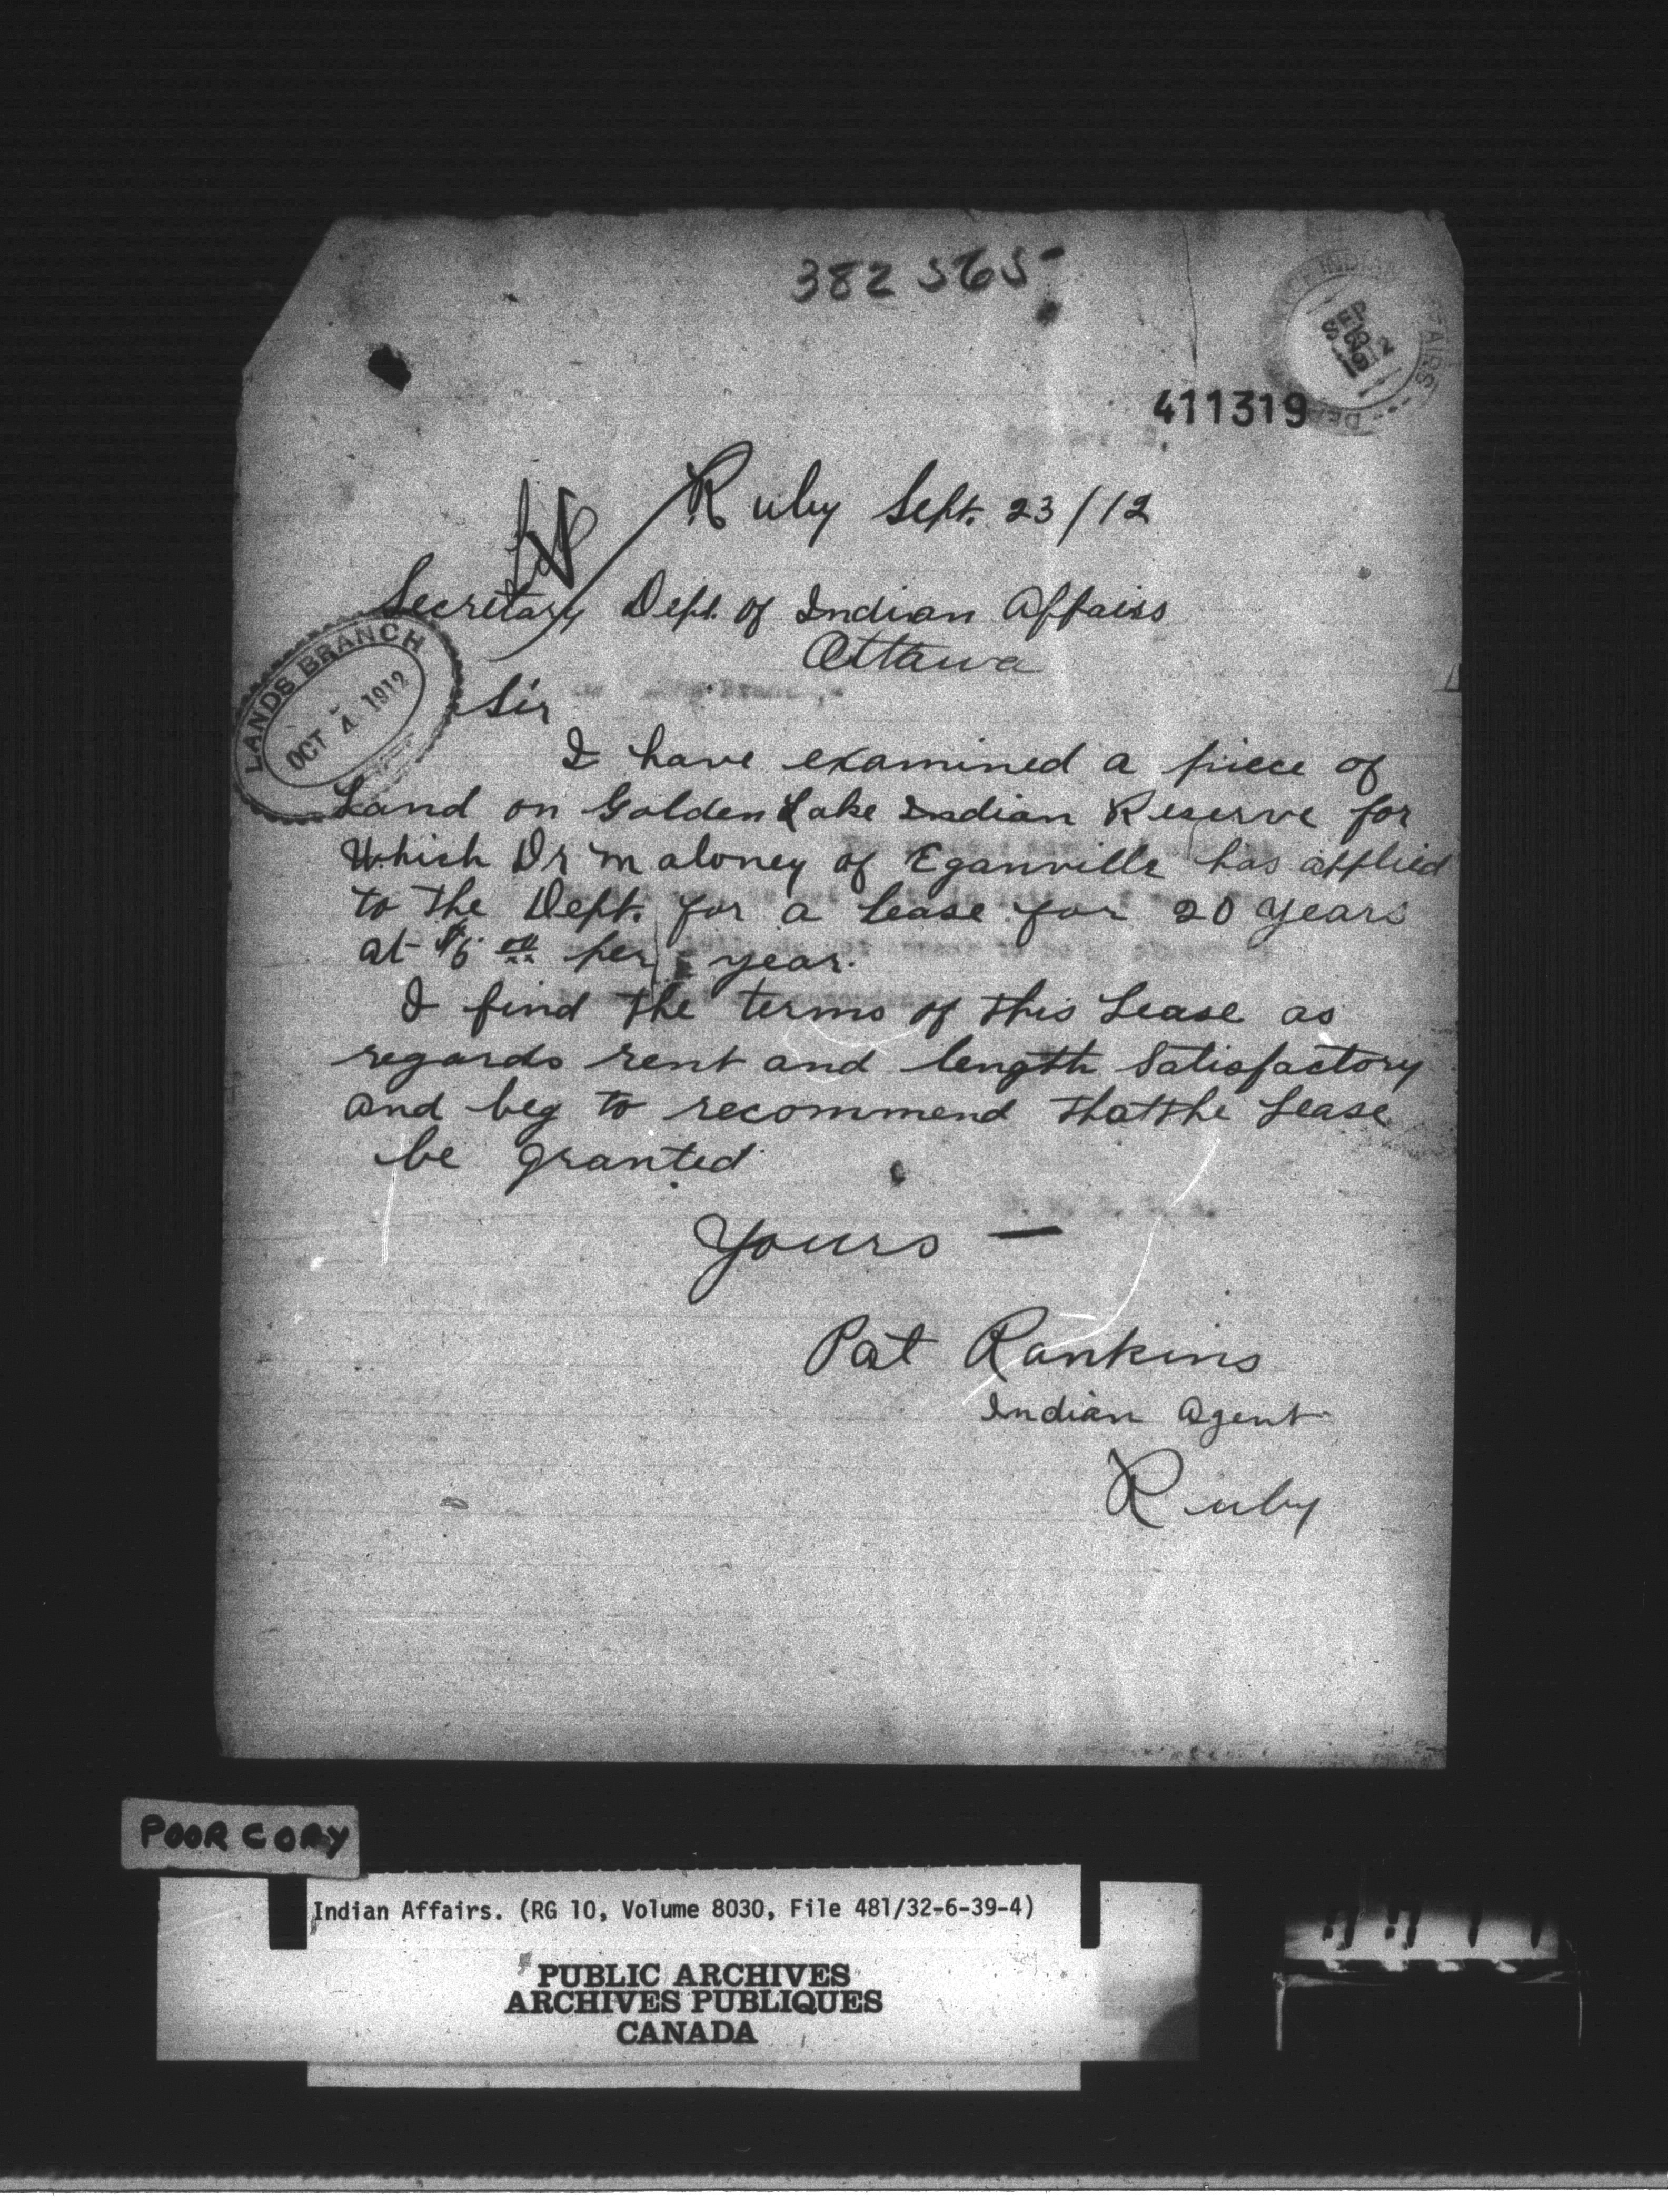 382565
411319
Ruby Sept. 23/12
Secretary Dept. of Indian Affairs
Ottawa
LANDS BRANCH
OCT 4 1912
Sir
I have examined a piece of
Land on Golden Lake Indian Reserve for
Which Dr Maloney of Eganville has applied
to the Dept. for a Lease for 20 years
at per year.
I find the terms of this Lease as
regards rent and length Satisfactory
and beg to recommend that the Lease
be granted
Yours —
Pat Rankins
Indian Agent
Ruby
POOR COPY
Indian Affairs. (RG 10, Volume 8030, File 481/32-6-39-4)
PUBLIC ARCHIVES
ARCHIVES PUBLIQUES
CANADA